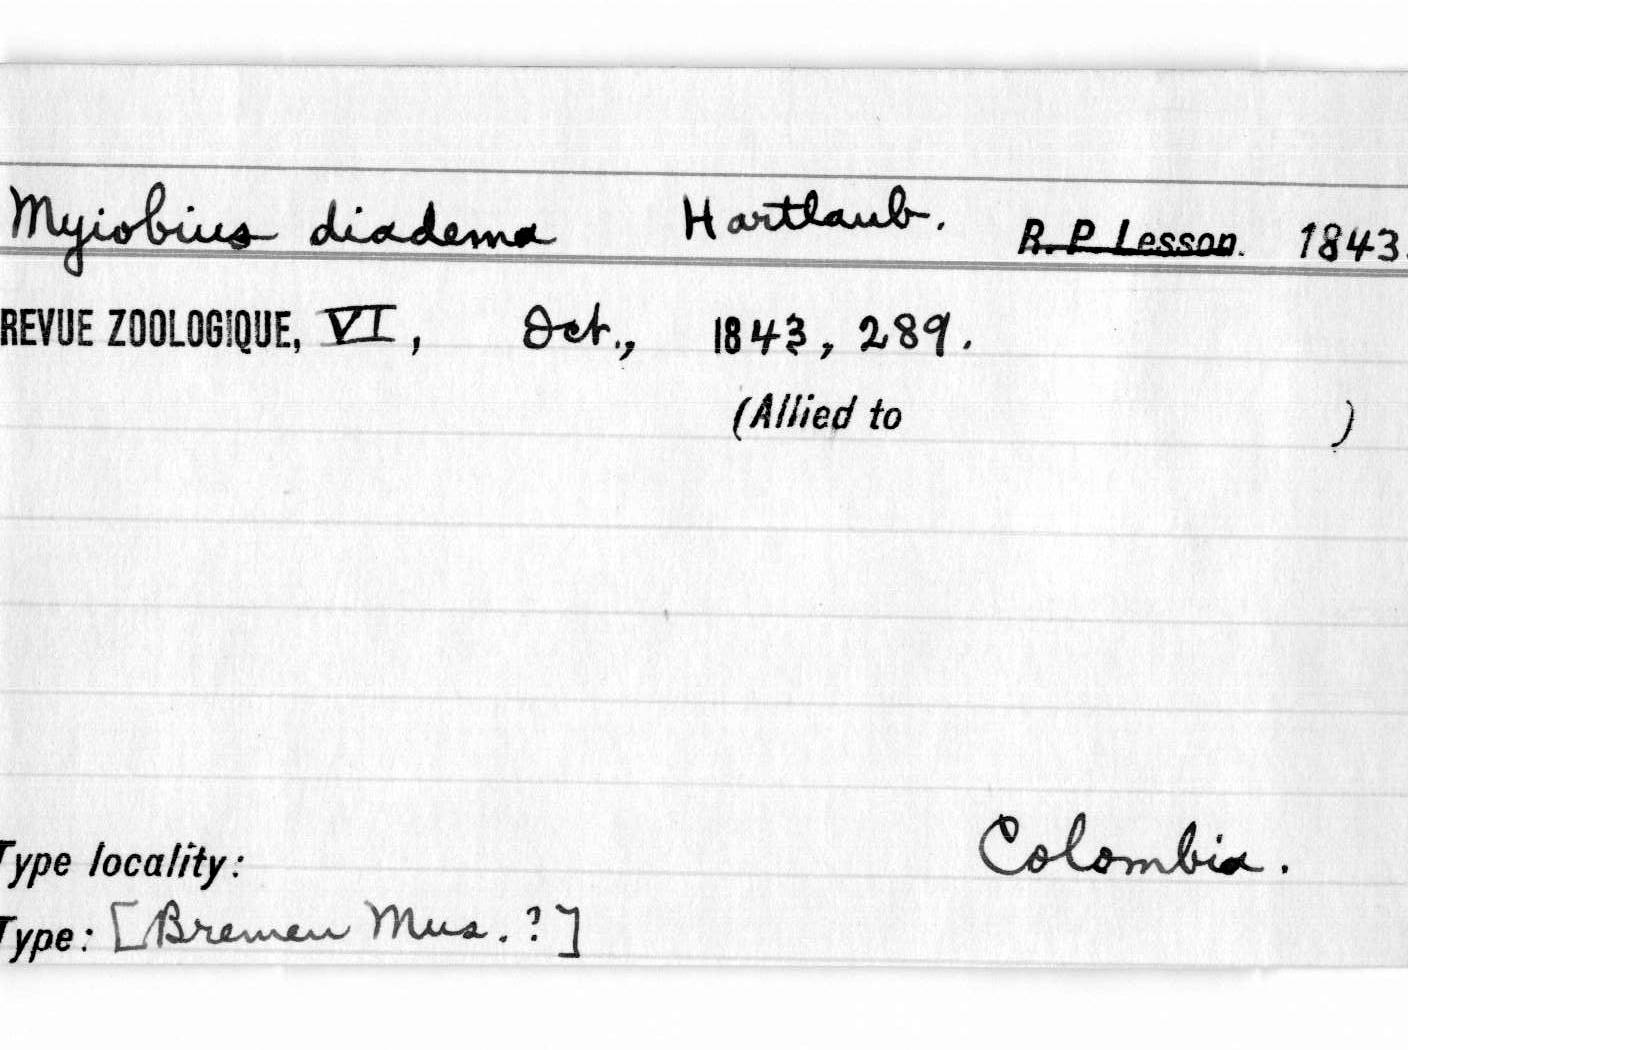 Myiobius diadema Hartlaub. R. P. Lesson. 1843.
REVUE ZOOLOGIQUE, VI, Oct., 1843, 289.
(Allied to )
Type locality: Colombia.
Type: [Bremen Mus. ?]